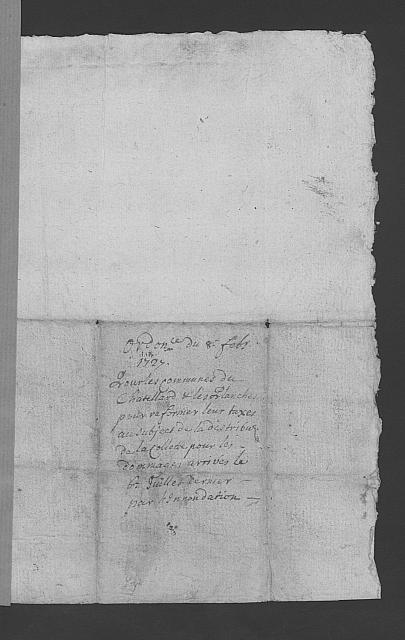 Ordon.ce du 8.e febr.
1727.
Pour les communes du
Chatellard & les Planches
pour reformer leur taxes
au Subject de la distribu
de la Collecte pour les
dommages arrivés le
6.e Juillet dernier
par l'Innondation